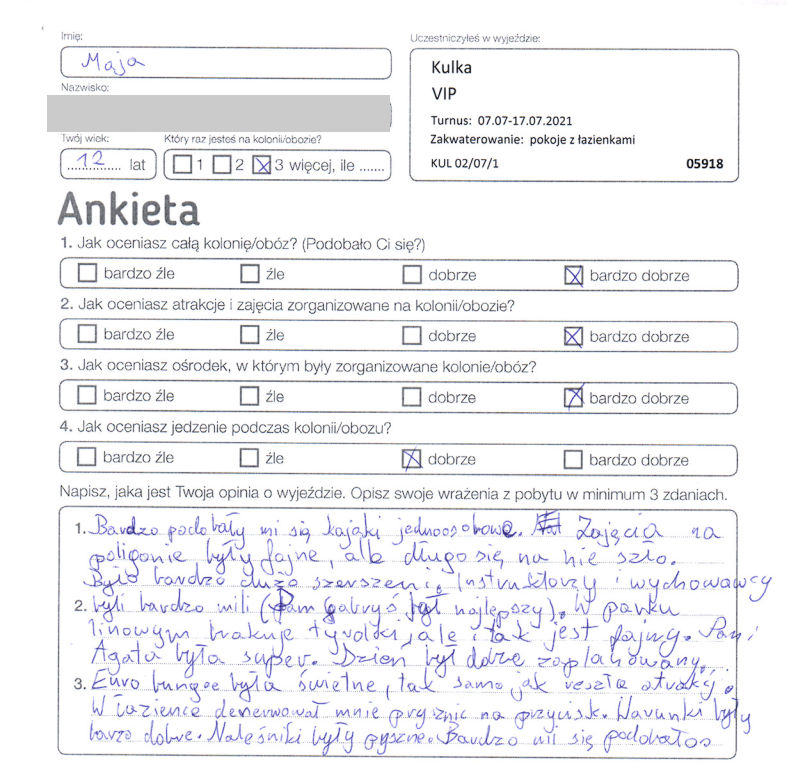 Imię:
Maja
Nazwisko:
Twój wiek:
Który raz jesteś na kolonii/obozie?
12 lat
1 2 3 więcej, ile .......
Uczestniczyłeś w wyjeździe:
Kulka
VIP
Turnus: 07.07-17.07.2021
Zakwaterowanie: pokoje z łazienkami
KUL 02/07/1 05918
Ankieta
1. Jak oceniasz całą kolonię/obóz? (Podobało Ci się?)
bardzo źle źle dobrze bardzo dobrze
2. Jak oceniasz atrakcje i zajęcia zorganizowane na kolonii/obozie?
bardzo źle źle dobrze bardzo dobrze
3. Jak oceniasz ośrodek, w którym były zorganizowane kolonie/obóz?
bardzo źle źle dobrze bardzo dobrze
4. Jak oceniasz jedzenie podczas kolonii/obozu?
bardzo źle źle dobrze bardzo dobrze
Napisz, jaka jest Twoja opinia o wyjeździe. Opisz swoje wrażenia z pobytu w minimum 3 zdaniach.
1. Bardzo podobały mi się kajaki jednoosobowe. Zajęcia na
poligonie były fajne, ale długo się na nie szło.
Było bardzo dużo szerszeni. Instruktorzy i wychowawcy
2. byli bardzo mili (Pan Gabryś był najlepszy). W parku
linowym brakuje tyrolki, ale i tak jest fajny. Pani
Agata była super. Dzień był dobrze zoplanowany.
3. Euro bungee była świetne, tak samo jak reszta atrakcji.
W łazience denerwował mnie prysznic na przycisk. Warunki były
barzo dobre. Naleśniki były pyszne. Bardzo mi się podobało